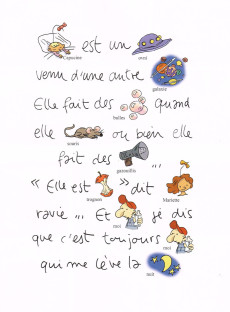 Capucine est un ovni
venu d'une autre galaxie
Elle fait des bulles quand
elle souris ou bien elle
fait des gazouillis ...
« Elle est trognon » dit Mariette
ravie ... Et moi je dis
que c'est toujours moi
qui me lève la nuit